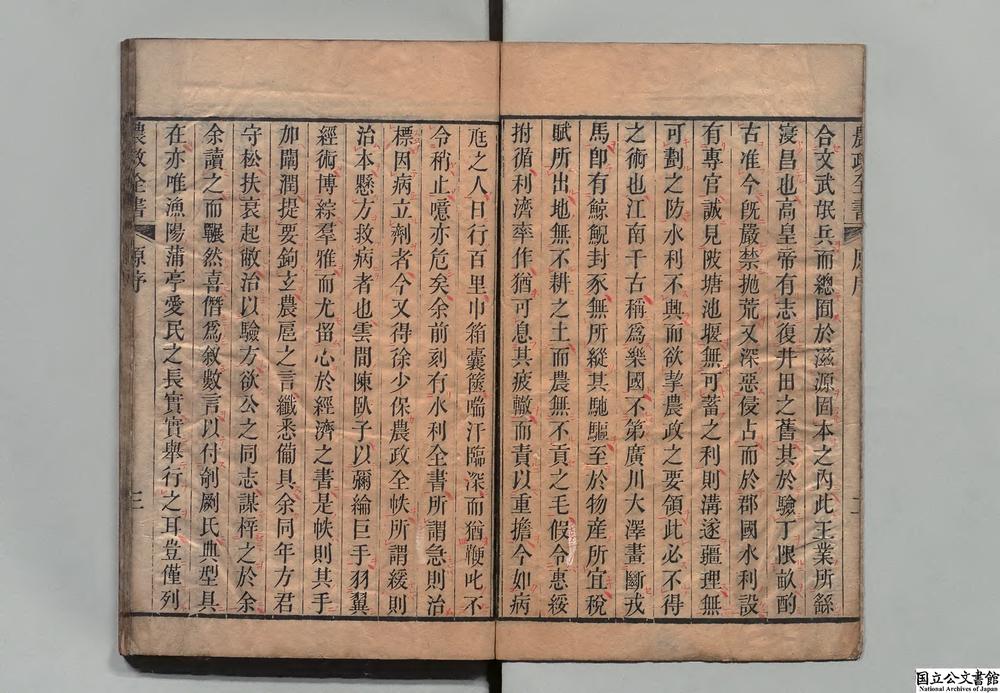 合文武氓兵而總囿於滋源固本之內此王業所繇
寖昌也高皇帝有志復井田之舊其於驗丁限畝酌
古准今旣嚴禁拋荒又深惡侵占而於郡國水利設
有專官誠見陂塘池堰無可蓄之利則溝遂疆理無
可劃之防水利不興而欲挈農政之要領此必不得
之術也江南千古稱爲樂國不第廣川大澤畫斷戎
馬卽有鯨鯢封豕無所縱其馳驅至於物產所宜稅
賦所出地無不耕之土而農無不貢之毛假令惠綏
拊循利濟率作猶可息其疲轍而責以重擔今如病
尫之人日行百里巾箱囊篋喘汗臨深而猶鞭叱不
令稍止噫亦危矣余前刻有水利全書所謂急則治
標因病立劑者今又得徐少保農政全帙所謂緩則
治本懸方救病者也雲間陳臥子以彌綸巨手羽翼
經術博綜羣雅而尤留心於經濟之書是帙則其手
加闢潤提要鉤立農扈之言纖悉備具余同年方君
守松扶衰起敝治以驗方欲公之同志謀梓之於余
余讀之而囅然喜僭爲敘數言以付剞劂氏典型具
在亦唯漁陽蒲亭愛民之長實實舉行之耳豈僅列
農政全書 原序 三
国立公文書館
National Archives of Japan